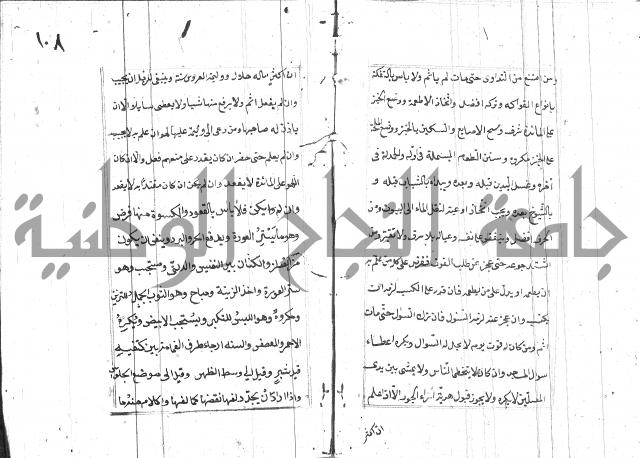 ١٠٨
ومن امتنع من التداوى حتى مات لم ياثم ولا باس بالتفكه
بانواع الفواكه وتركه افضل واتخاذ الاطعمة ووضع الخبز
على المائدة سرف ومسح الاصابع والسكين بالخبز ووضع المملحة
على الخبز مكروه وسنن الطعام البسملة في اوله والحمدلة في
آخره وغسل اليدين قبله وبعده ويبداء بالشباب قبله و
بالشيوخ بعده ويجب اتخاذ اوعية لنقل الماء الى البيوت ومن
الخزف افضل وينفق على نفسه وعياله بلا سرف ولا تقتير ومن
اشتد جوعه حتى عجز عن طلب القوت ففرض على كل من علم به
ان يطعمه او يدل على من يطعمه فان قدر على الكسب لزمه ان
يكتسب وان عجز عنه لزمه السئول فان ترك السئول حتى مات
اثم ومن كان له قوت يوم لا يحل له السؤال ويكره اعطاء
سوال المسجد وان كان لا يتخطى الناس ولا يمشى بين يدى
المصلين لا يكره ولا يجوز قبول هدية امراء الجور الا اذا علم
ان اكثر
ان اكثر ماله حلال ووليمة العروس سنة وينبغى للرجل ان يجيب
وان لم يفعل اثم ولا يرفع منها شيا ولا يعطى سايلا الا ان
ياذن له صاحبها ومن دعى الى وليمة عليها لهو ان علم به لا يجيب
وان لم يعلم حتى حضر ان كان يقدر على منعهم فعل والا ان كان
اللهو على المائدة لا يقعد وان لم يكن ان كان مقتدى به لا يقعد
وان لم يكن فلا باس بالقعود والكسوة منها فرض
وهو ما يستر العورة ويدفع الحر والبرد وينبغى ان يكون
من القطن والكتان بين النفيس والدنى ومستحب وهو
ستر العورة واخذ الزينة ومباح وهو الثوب الجميل للتزين
ومكروه وهو اللبس للتكبر ويستحب الابيض ويكره
الاحمر والمعصفر والسنة ارخاء طرف العمامة بين كتفيه
قيل شبر وقيل الى وسط الظهر وقيل الى موضع الجلوس
واذا اراد ان يجدد لفها نقضها كما لفها والكلام منه ما
جامعة النجاح الوطنية